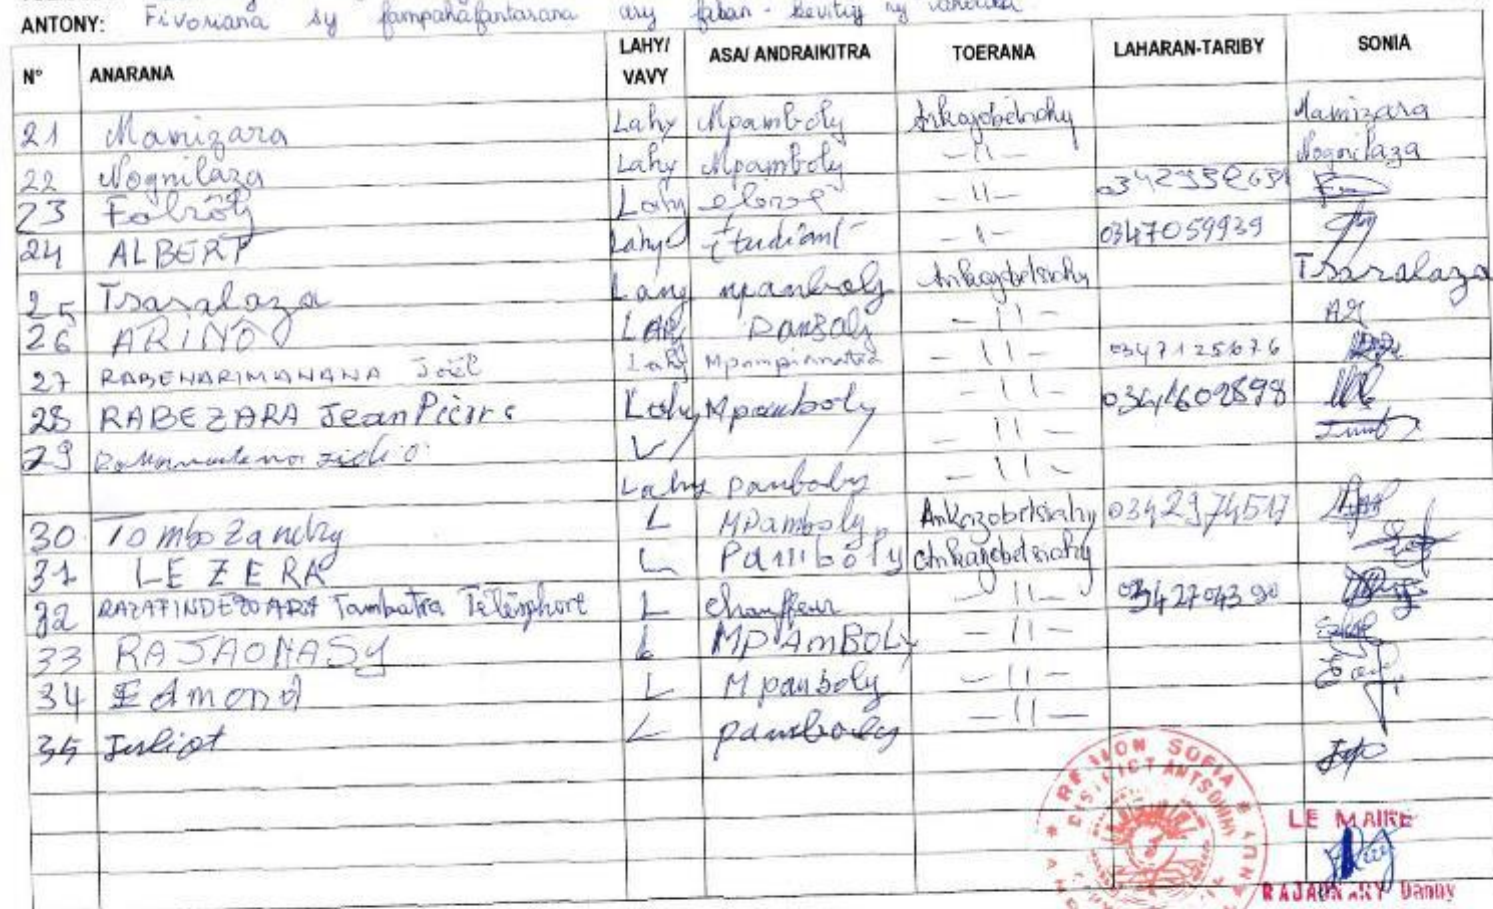 ANTONY: Fivoriana sy fampahafantarana ary
N° ANARANA LAHY/ VAVY ASA/ ANDRAIKITRA TOERANA LAHARAN-TARIBY SONIA
21 Mamizara Lahy Mpamboly Ankazobetsihy Mamizara
22 Nognilaza Lahy Mpamboly - 11 - Nognilaza
23 Lahy - 11 -
24 ALBERT Lahy étudiant - 11 - 0347059939
25 Tsaralaza Lahy mpamboly Ankazobetsihy Tsaralaza
26 ARINO LAHy - 11 -
27 RABENARIMANANA Joël Lahy Mpampianatra - 11 - 0347125676
28 RABEZARA Jean Pierre Lahy Mpamboly - 11 - 0341602898
29 V - 11 -
Lahy pamboly - 11 -
30 Tombozandry L MPamboly Ankazobetsihy 0342974517
31 LEZERA L Pamboly Ankazobetsihy
32 Tombatra Télésphore L chauffeur - 11 - 0342704390
33 RAJAONASY L MPAmBOLy - 11 -
34 Edmond L Mpamboly - 11 -
35 Juliot L pamboly - 11 -
REGION SOFIA
DISTRICT ANTSOHIHY
LE MAIRE
RAJAONARY Danny